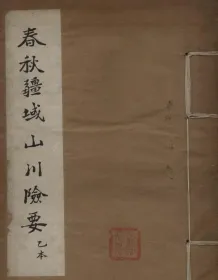 春秋疆域山川險要乙本